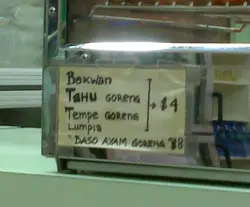 Bakwan
TAHU GORENG
Tempe GORENG → $4
Lumpia
"BASO AYAM GORENG $8